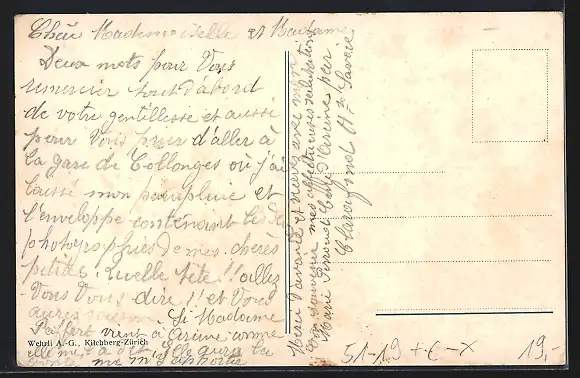 Chère Mademoiselle et Madame
Deux mots pour Vous
remercier tout d'abord
de votre gentillesse et aussi
pour Vous prier d'aller à
la gare de Collonges où j'ai
laissé mon parapluie et
l'enveloppe contenant les
photographies de mes chères
petites. Quelle tête!! allez
Vous Vous dire!! et Vous
aurez raison. Si Madame
vient à comme
elle m'a dit elle aura la
me m'apporter
Wehrli A.-G., Kilchberg-Zürich
Merci d'avance et recevez avec mon
bon souvenir mes affectueuses salutations
Marie par
H<sup>te</sup> Savoie
51-19 + C - X
19,-